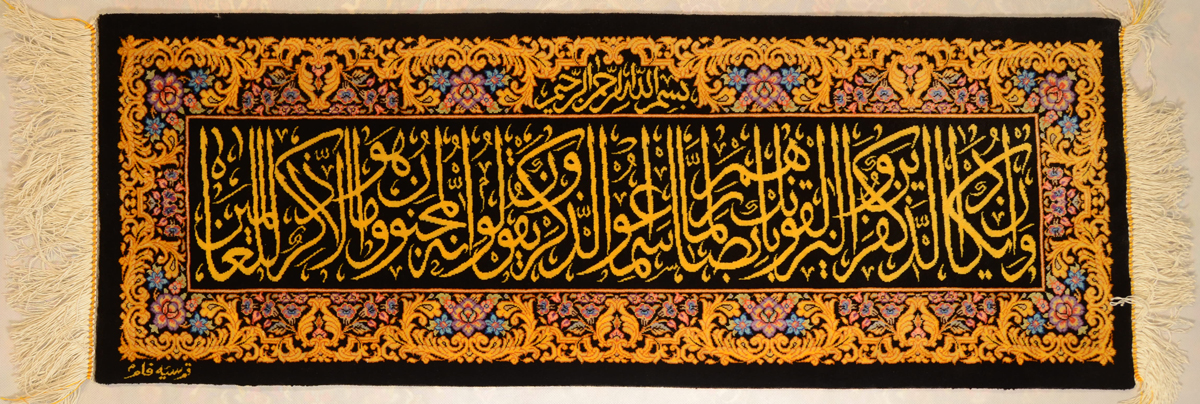 بسم الله الرحمن الرحيم
وإن يكاد الذين كفروا ليزلقونك بأبصارهم لما سمعوا الذكر ويقولون إنه لمجنون وما هو إلا ذكر للعالمين